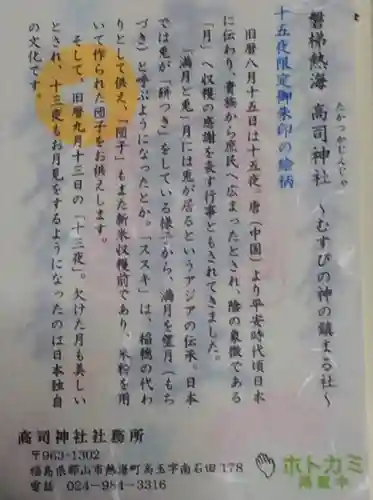 磐梯熱海 高司神社 ～むすびの神の鎮まる社～
たかつかじんじゃ
十五夜限定御朱印の絵柄
旧暦八月十五日は十五夜。唐(中国)より平安時代頃日本
に伝わり、貴族から庶民へ広まったとされ、陰の象徴である
「月」へ収穫の感謝を表す行事ともされてきました。
「満月と兎」月には兎が居るというアジアの伝承。日本
では兎が「餅つき」をしている様子から、満月を望月(もち
づき)と呼ぶようになったとか。「ススキ」は、稲穂の代わ
りとして供え、「団子」もまた新米収穫前であり、米粉を用
いて作られた団子をお供えします。
そして、旧暦九月十三日の「十三夜」。欠けた月も美しい
とされ、十三夜もお月見をするようになったのは日本独自
の文化です。
高司神社社務所
〒963-1302
福島県郡山市熱海町高玉字南石田178
電話 024-984-3316
ホトカミ
掲載中